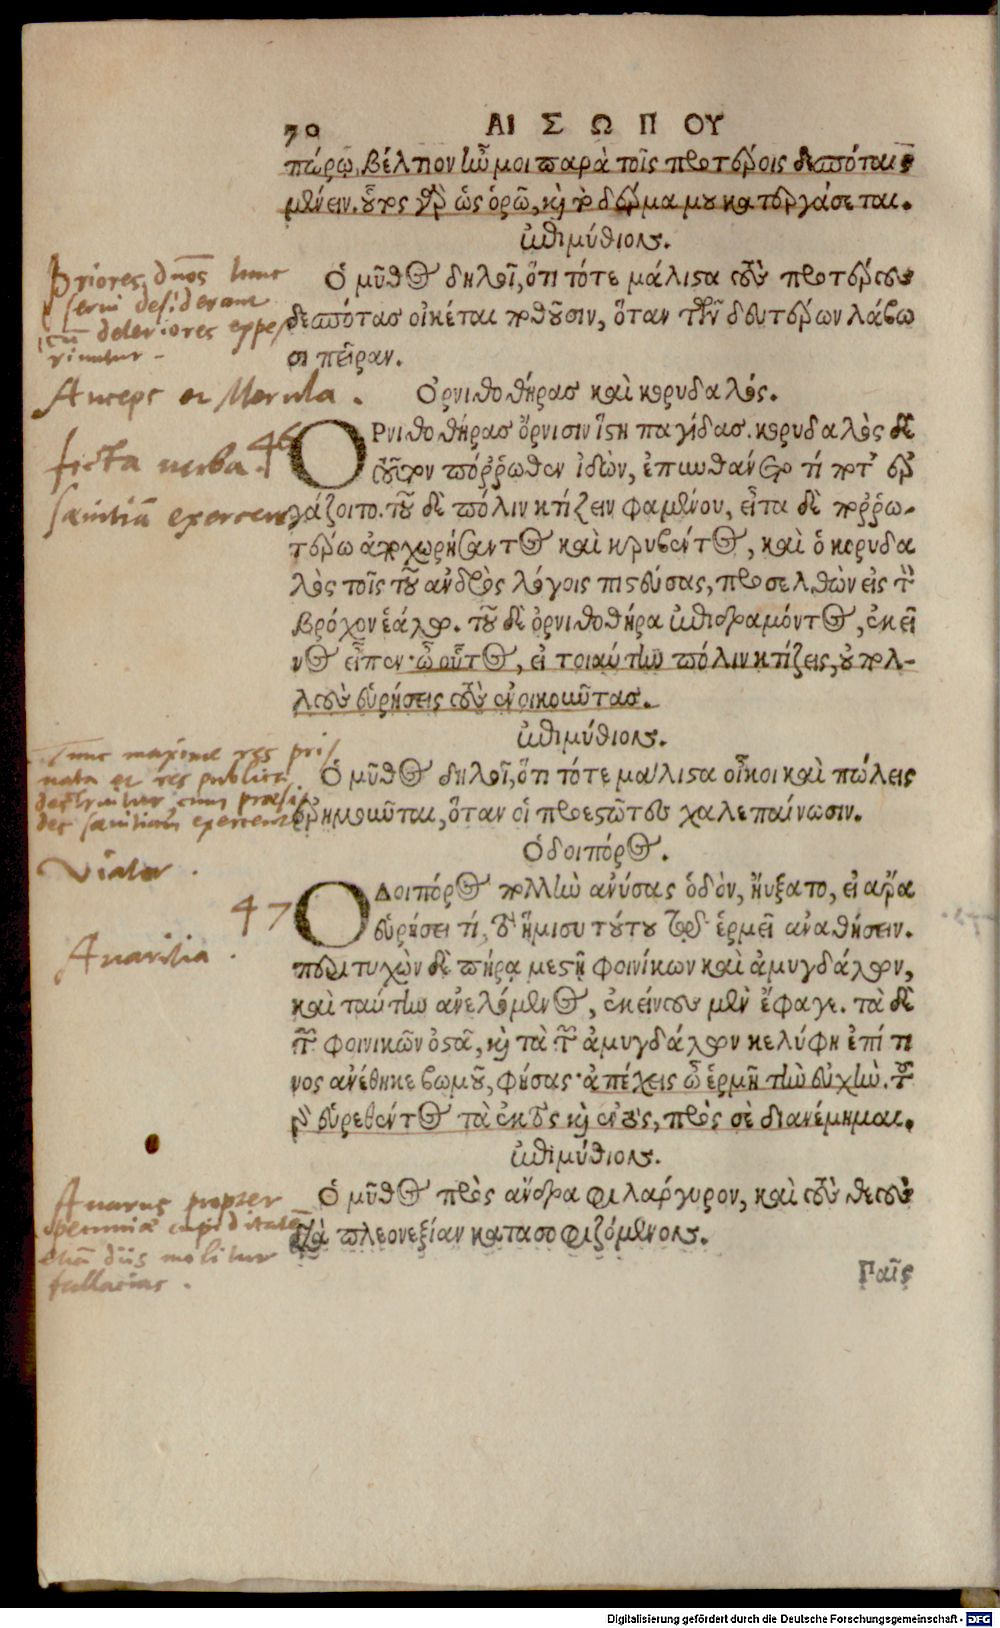 70 ΑΙΣΩΠΟΥ
πώρῳ, βέλτιον ἦν μοι παρὰ τοῖς προτέροις δεσπόταις
μένειν. οὗτος γὰρ ὡς ὁρῶ, καὶ τὸ δέρμα μου κατεργάσεται.
ἐπιμύθιον.
Ὁ μῦθος δηλοῖ, ὅτι τότε μάλιστα τοὺς προτέρους
δεσπότας οἰκέται ποθοῦσιν, ὅταν τῶν δευτέρων λάβω
σι πεῖραν.
Ὀρνιθοθήρας καὶ κορυδαλός.
ΟΡνιθοθήρας ὄρνισιν ἵστη παγίδας. κορυδαλὸς δὲ
τοῦτον πόῤῥωθεν ἰδὼν, ἐπυνθάνετο τί ποτ' ἐρ
γάζοιτο. τοῦ δὲ πόλιν κτίζειν φαμένου, εἶτα δὲ ποῤῥω-
τέρω ἀποχωρήσαντος καὶ κρυβέντος, καὶ ὁ κορυδα
λὸς τοῖς τοῦ ἀνδρὸς λόγοις πιστεύσας, προσελθὼν εἰς τὸν
βρόχον ἑάλω. τοῦ δὲ ὀρνιθοθήρα ἐπιδραμόντος, ἐκεῖ
νος εἶπεν· ὦ οὗτος, εἰ τοιαύτην πόλιν κτίζεις, οὐ πολ-
λοὺς εὑρήσεις τοὺς ἐνοικοῦντας.
ἐπιμύθιον.
Ὁ μῦθος δηλοῖ, ὅτι τότε μάλιστα οἶκοι καὶ πόλεις
ἐρημοῦνται, ὅταν οἱ προεστῶτες χαλεπαίνωσιν.
Ὁδοιπόρος.
ΟΔοιπόρος πολλὴν ἀνύσας ὁδὸν, ηὔξατο, εἰ ἄρα
εὑρήσει τί, τὸ ἥμισυ τούτου τῷ ἑρμῇ ἀναθήσειν.
περιτυχὼν δὲ πήρᾳ μεστῇ φοινίκων καὶ ἀμυγδάλων,
καὶ ταύτην ἀνελόμενος, ἐκείνους μὲν ἔφαγε. τὰ δὲ
τῶν φοινικῶν ὀστᾶ, καὶ τὰ τῶν ἀμυγδάλων κελύφη ἐπί τι
νος ἀνέθηκε βωμοῦ, φήσας· ἀπέχεις ὦ ἑρμῆ τὴν εὐχήν. τοῦ
γὰρ εὑρεθέντος τὰ ἐκτὸς καὶ ἐντὸς, πρὸς σὲ διανέμημαι.
ἐπιμύθιον.
Ὁ μῦθος πρὸς ἄνδρα φιλάργυρον, καὶ τοὺς θεοὺς
διὰ πλεονεξίαν κατασοφιζόμενον.
Παῖς
Priores dnos tunc
servi desiderant
cu deteriores expe
riuntur -
Auceps et Merula.
46
ficta verba.
saevitiã exercens
Tunc maxime res pri
vata et res publica
destruitur cum præsi
des saevitiam exercent
Viator.
47
Avaritia.
Avarus propter
pecuniæ cupiditatẽ
etiã diis molitur
fallacias.
Digitalisierung gefördert durch die Deutsche Forschungsgemeinschaft - DFG